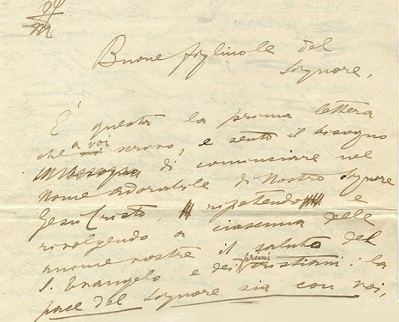 Buone figliuole del
Signore,
È questa la prima lettera
che a voi scrivo, e sento il bisogno
di cominciare nel
Nome Adorabile di Nostro Signore
Gesù Cristo, ripetendo e
rivolgendo a ciascuna delle
anime nostre il saluto del
S. Evangelo e dei primi cristiani: la
pace del Signore sia con voi,